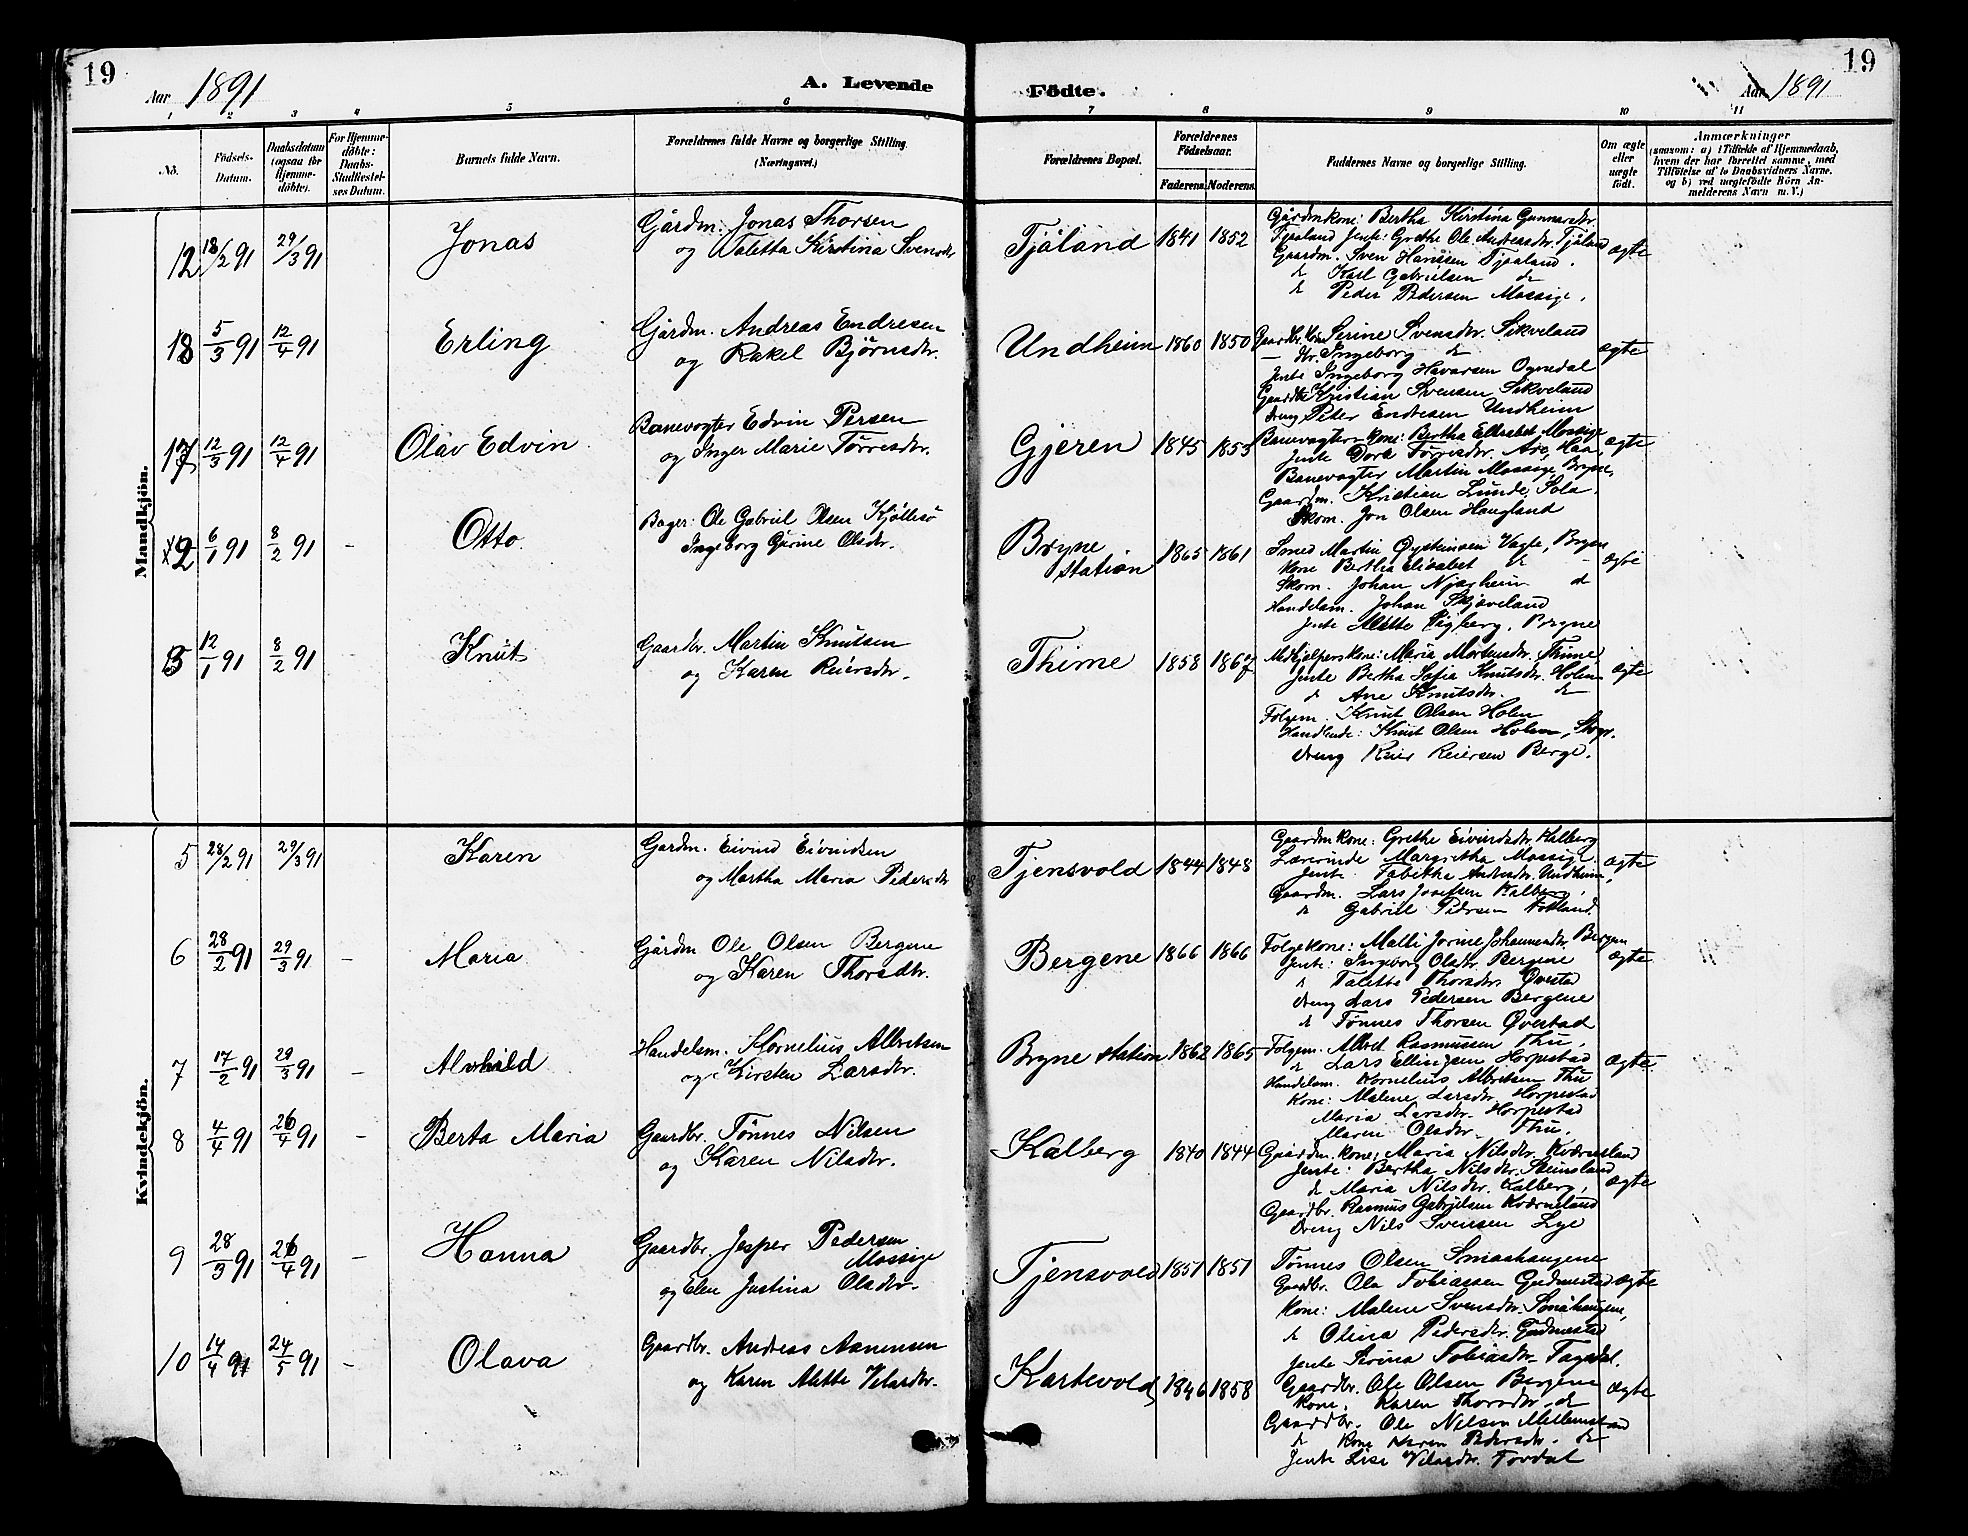 19
Aar 1891
A. Levende
Fødte.
Aar 1891
19
1 2 3 4 5 6 7 8 9 10 11
No.
Fødsels-Datum.
Daabsdatum (ogsaa for Hjemme-døbte).
For Hjemme-døbte: Daabs-Stadfæstel-ses Datum.
Barnets fulde Navn.
Forældrenes fulde Navne og borgerlige Stilling. (Næringsvei.)
Forældrenes Bopæl.
Forældrenes Fødselsaar.
Faderens. Moderens.
Faddernes Navne og borgerlige Stilling.
Om ægte eller uægte født.
Anmærkninger
(saasom: a) i Tilfælde af Hjemmedaab, hvem der har forrettet samme, med Tilføielse af to Daabsvidners Navne. og b) ved uægtefødte Børn An-melderens Navn m. V.)
Mandkjøn.
12 18/2 91 29/3 91 Jonas
Gårdm. Jonas Thorsen
og Taletta Kirstina Svensdr
Tjåland 1841 1852
Gårdmkone: Bertha Kirstina Gunnarsdr.
Tjaaland Jente: Grethe Ole Andreasdr. Tjåland
Gaardm. Sven Hansen Tjaaland.
d Karl Gabrielsen d
d Peder Pedersen Mossige.
ægte
5/3 91 12/4 91 Erling
Gårdm. Andreas Endresen
og Rakel Bjørnsdr.
Undheim 1860 1850
Gaardbr. kone Serine Svensdr. Sikveland
— dr. Ingeborg d
Jente Ingeborg Havarsen Ognedal
Kristian Svensen Sikveland
dreng Peter Endresen Undheim
ægte
12/3 91 12/4 91 Olav Edvin
Banevogter Edvin Persen
og Inger Marie Tørresdr.
Gjeren 1845 1853
Banevogter-kone: Bertha Elisabet Mossige
Jente Dore Tørresdr. Are, Haa,
Banevogter Martin Mossige, Bryne,
Gaardm. Kristian Lunde, Sola.
Skom. Jon Olsen Haugland
ægte
2 6/1 91 8/2 91 - Otto
Bager: Ole Gabriel Olsen Kjøllesø
Ingeborg Gurine Olsdr.
Bryne station 1865 1861
Smed Martin Øysteinsen Vagle, Bryne
kone Bertha Elisabet d -
Skom. Johan Njærheim d
Handelsm. Johan Skjæveland
Jente Mette Sigberg, Bryne
ægte
3 12/1 91 8/2 91 Knut
Gaardbr. Martin Knutsen
og Karen Reiersdr.
Thime 1858 1867
Medhjelperskone: Maria Mortensdr. Thime,
Jente Bertha Sofia Knutsdr. Holen
d Ane Knutsdr. d
Følgem. Knut Olsen Holen
Handlende: Knut Olsen Holen,
dreng Reier Reiersen Berge.
ægte
Kvindekjøn.
5 28/2 91 29/3 91 Karen
Gardm. Eivind Eivindsen
og Martha Maria Pedersdr
Tjensvold 1844 1848
Gaardmkone: Grethe Eivindsdr. Kalberg
Lærerinde Margretha Mossige
Jente Tabitha Andrsdr. Undheim,
Gaardm. Lars Josefsen Kalberg,
d Gabriel Pedersen Fotland.
ægte
6 28/2 91 29/3 91 - Maria
Gårdm Ole Olsen Bergene
og Karen Thorsdtr.
Bergene 1866 1866
Følgekone: Malli Jorine Johannesdr. Bergene
Jente: Ingeborg Olsdr. Bergene
d Taletta Thorsdr. Øvestad
dreng Lars Pedersen Bergene
d Tønnes Thorsen Øvestad
ægte
7 17/2 91 29/3 91 - Alvhild
Handelsm. Kornelius Albretsen
og Kirsten Larsdtr.
Bryne station 1862 1865
Følgem. Albret Rasmussen Thu,
d Lars Ellingsen Horpestad
Handelsm. Kornelius Albretsen Thu
Kone: Malene Larsdr. Horpestad
Maria Larsdtr. Horpestad
Maren Olsdtr. Thu.
ægte
8 4/4 91 26/4 91 - Berta Maria
Gaardbr. Tønnes Nilsen
og Karen Nilsdtr.
Kalberg 1840 1844
Gaardm. kone: Maria Nilsdr. Kvernland
Jente: Bertha Nilsdtr. Stensland
d Maria Nilsdtr. Kalberg,
Gaardbr. Rasmus Gabrielsen Kvernland
Dreng Nils Svensen Lye
ægte
9 28/3 91 26/4 91 - Hanna
Gaardbr. Jesper Pedersen Mossige
og Elen Justina Olsdtr.
Tjensvold 1851 1851
Tønnes Olsen Smaahaugene
Gaardbr. Ola Tobiassen Gudmestad
Kone: Malene Svensdr. Småhaugene,
d Olina Pedersdtr. Gudmestad
Jente Serina Tobiasdtr.
ægte
10 14/4 91 24/5 91 - Olava
Gaardbr. Andreas Aanensen
og Karen Alette Vilasdtr.
Kartevold 1846 1858
Gaardbr. Ole Olsen Bergene
Kone. Karen Thorsdtr. d
Gaardbr. Ole Nilsen Mellemstrand
d Kone Karen Pedersdtr. d
Jente Lise Vilasdtr. Fordal
ægte